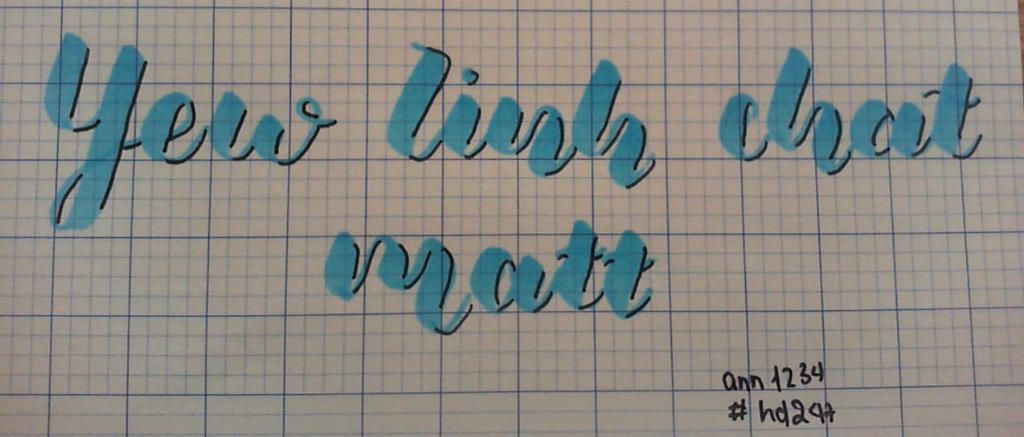 Yew linh chat
matt
ann1234
# hd247